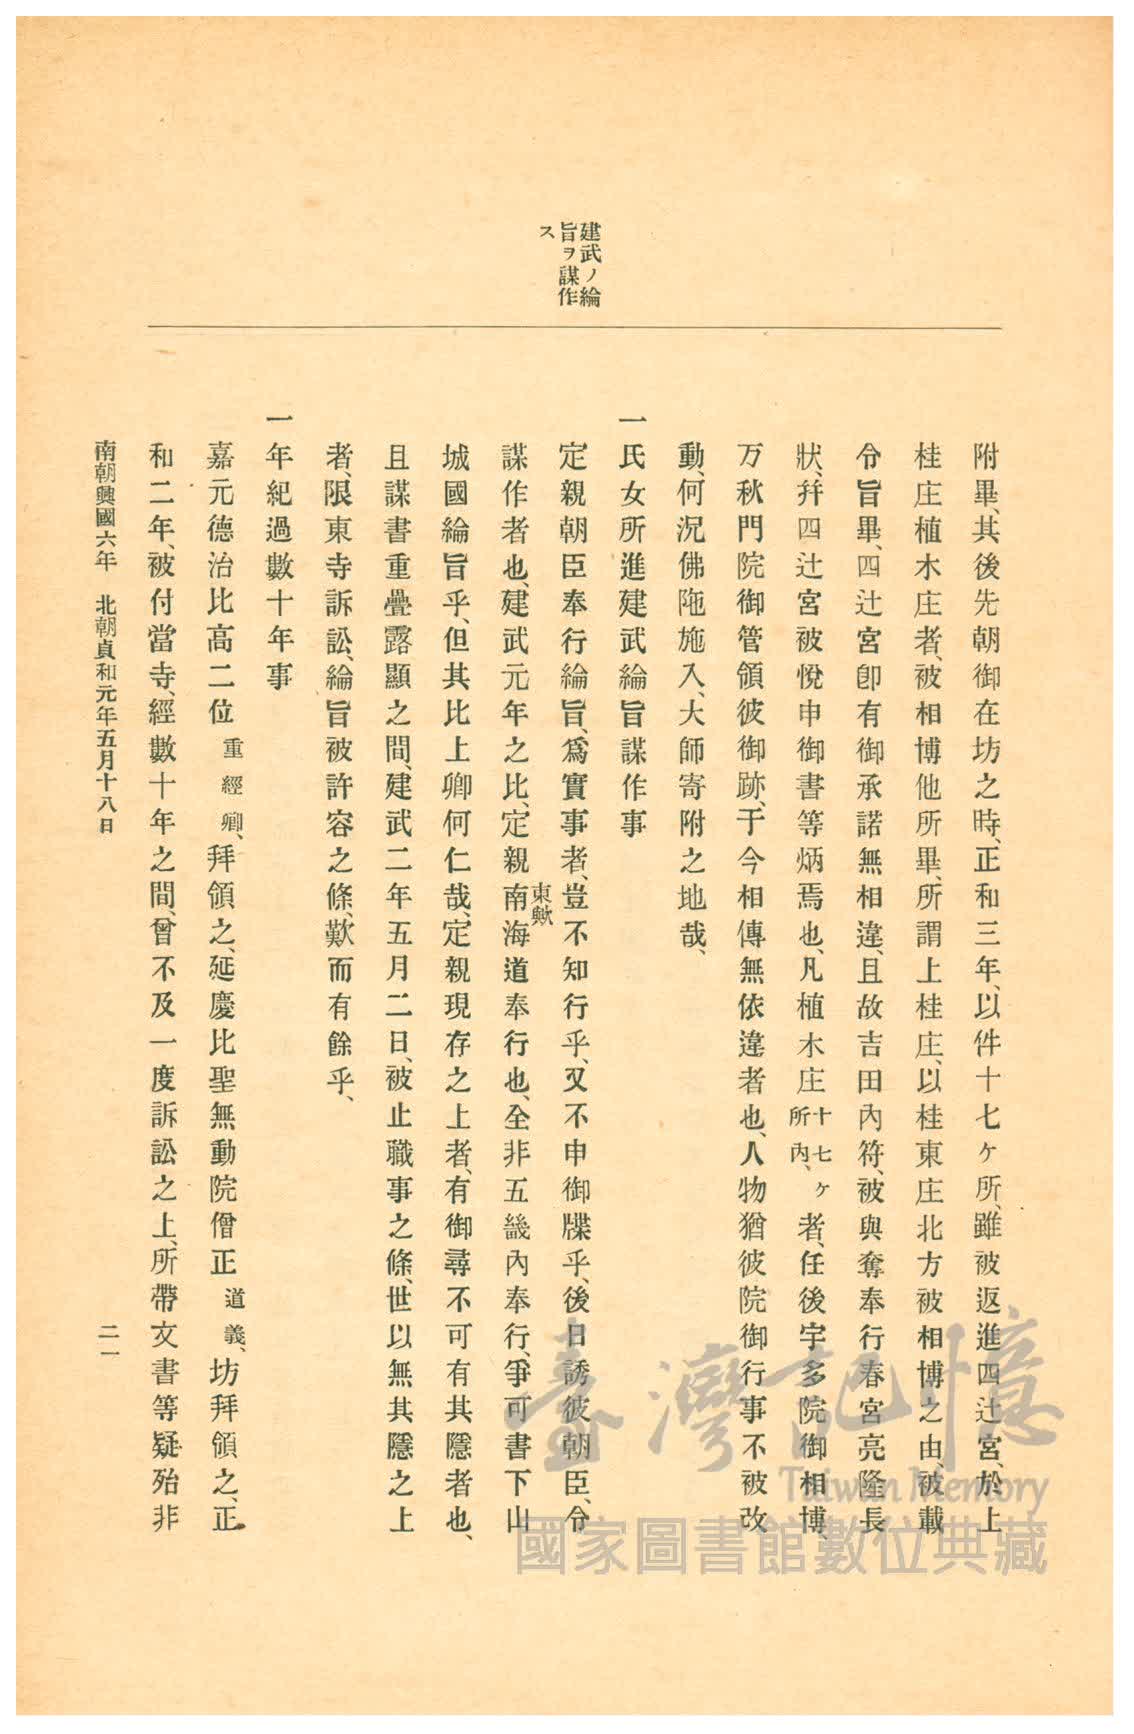 建武ノ綸
旨ヲ謀作
ス
附畢、其後先朝御在坊之時、正和三年、以件十七ケ所、雖被返進四辻宮、於上
桂庄植木庄者、被相博他所畢、所謂上桂庄、以桂東庄北方被相博之由、被載
令旨畢、四辻宮卽有御承諾無相違、且故吉田內符、被與奪奉行春宮亮隆長
狀、幷四辻宮被悅申御書等炳焉也、凡植木庄十七ケ所內、者、任後宇多院御相博、
万秋門院御管領彼御跡、于今相傳無依違者也、人物猶彼院御行事不被改
動、何況佛陁施入、大師寄附之地哉、
一氏女所進建武綸旨謀作事
定親朝臣奉行綸旨、爲實事者、豈不知行乎、又不申御牒乎、後日誘彼朝臣、令
謀作者也、建武元年之比、定親南海道奉行也、全非五畿內奉行、爭可書下山
東歟
城國綸旨乎、但其比上卿何仁哉、定親現存之上者、有御尋不可有其隱者也、
且謀書重疊露顯之間、建武二年五月二日、被止職事之條、世以無其隱之上
者、限東寺訴訟、綸旨被許容之條、歎而有餘乎、
一年紀過數十年事
嘉元德治比高二位重經卿、拜領之、延慶比聖無動院僧正道義、坊拜領之、正
和二年、被付當寺、經數十年之間、曾不及一度訴訟之上、所帶文書等疑殆非
南朝興國六年　北朝貞和元年五月十八日
二一
臺灣記憶
Taiwan Memory
國家圖書館數位典藏